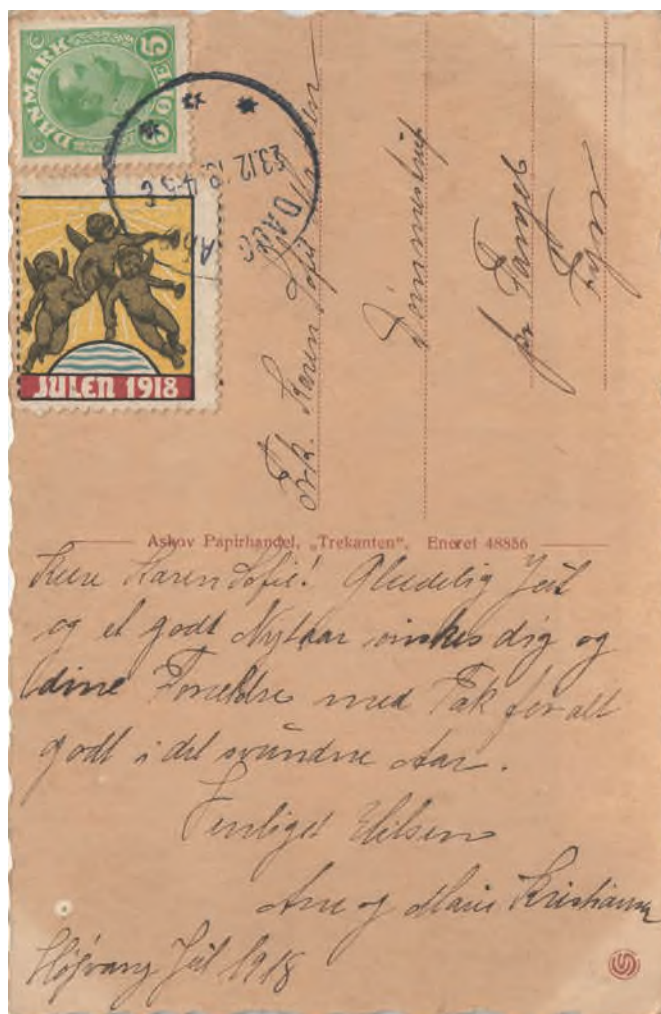 DANMARK
5 ØRE 5
23.12.18 4-5 E
JULEN 1918
Frk. Karen Sofie
pr Fangel
Fyn
Askov Papirhandel, „Trekanten“. Eneret 48856
Kære Karen Sofie! Glædelig Jul
og et godt Nytaar ønskes dig og
dine Forældre med Tak for alt
godt i det svundne Aar.
Venligst Hilsen
Ane og Marie Kristiansen
Højvang Jul 1918